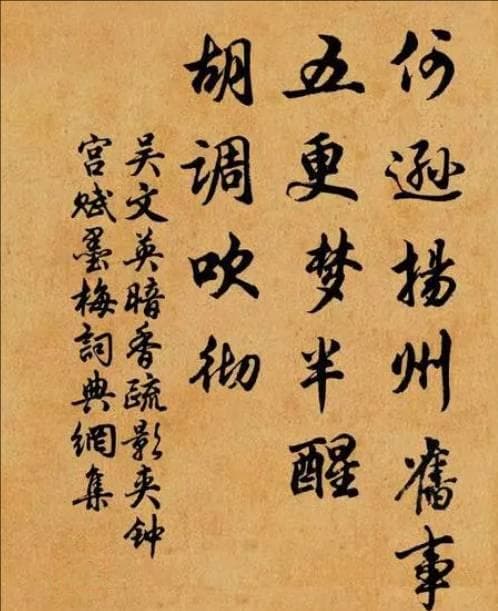 何逊揚州舊事
五更梦半醒
胡调吹彻
吴文英暗香疏影夹钟
宫赋墨梅詞典網集